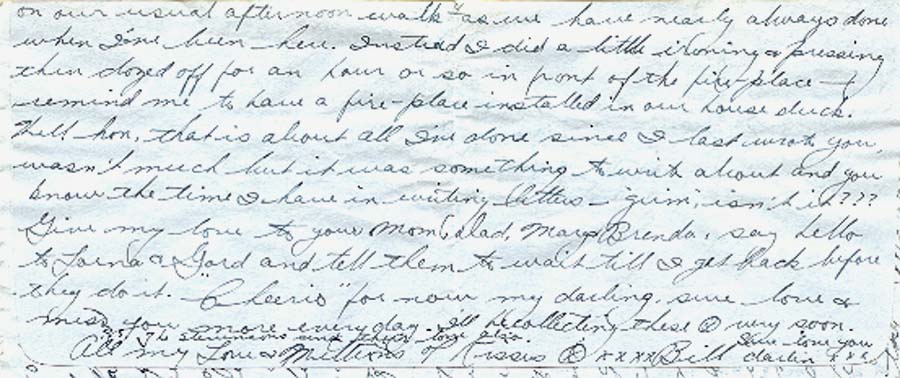 on our usual afternoon walk as we have nearly always done
when I've been here. Instead I did a little ironing & pressing
then dozed off for an hour or so in front of the fire-place —
remind me to have a fire-place installed in our house duck.
Well hon, that is about all I've done since I last wrote you,
wasn't much but it was something to write about and you
know the time I have in writing letters – grim, isn't it???
Give my love to your Mom, dad, Marg, Brenda, say hello
to Lorna & Gord and tell them to wait till I get back before
they do it. "Cheerio" for now my darling, sure love &
miss you more every day. I'll be collecting these @ very soon.
The Stevensons send their love also.
Sure love you
All my Love & Millions of Kisses @ xxxx Bill darlin xxx